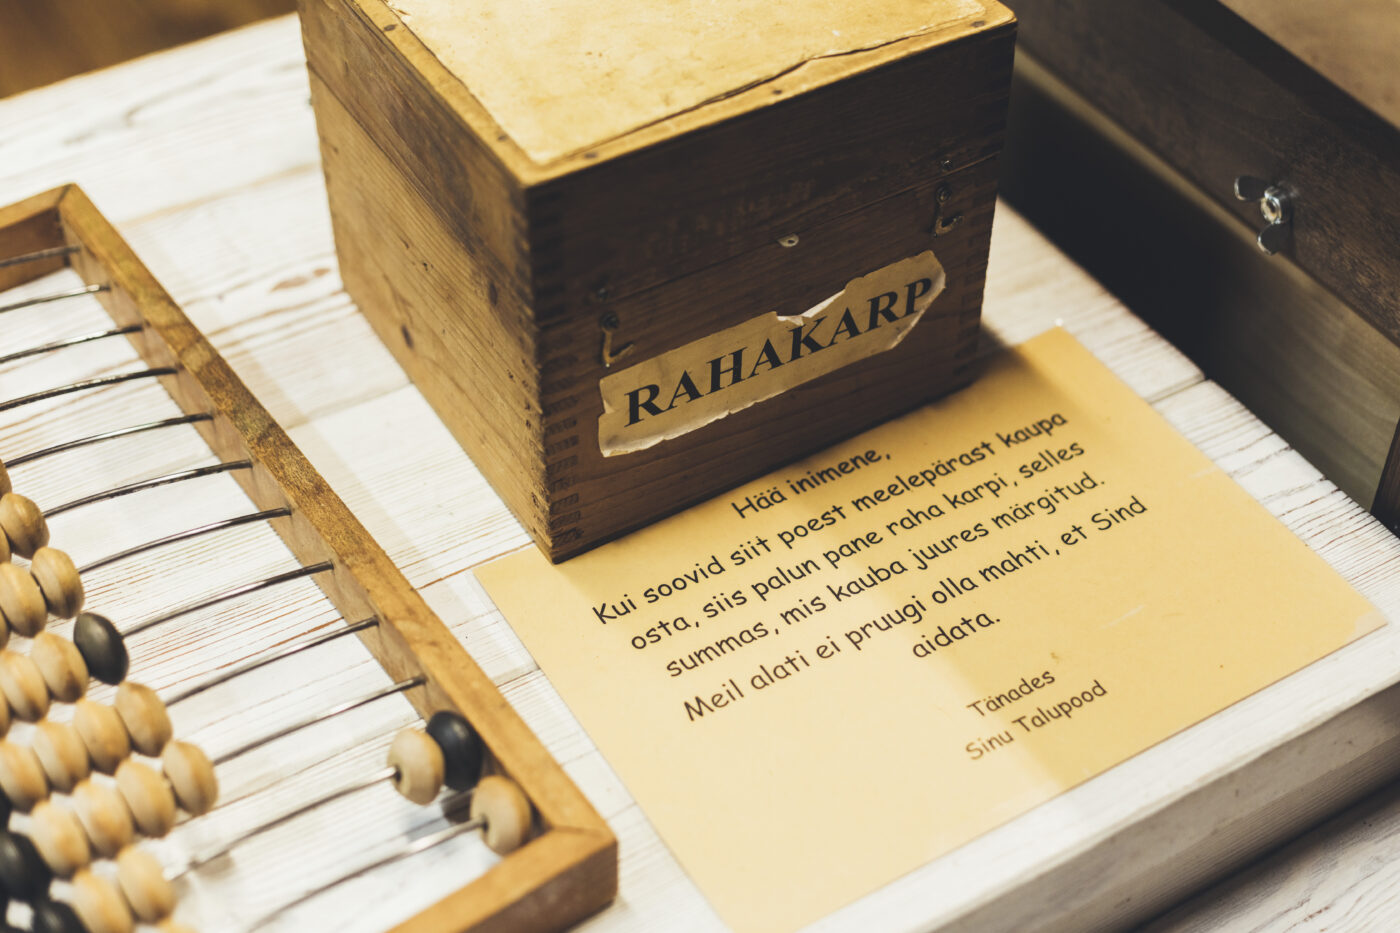 RAHAKARP
Hää inimene,
Kui soovid siit poest meelepärast kaupa
osta, siis palun pane raha karpi, selles
summas, mis kauba juures märgitud.
Meil alati ei pruugi olla mahti, et Sind
aidata.
Tänades
Sinu Talupood